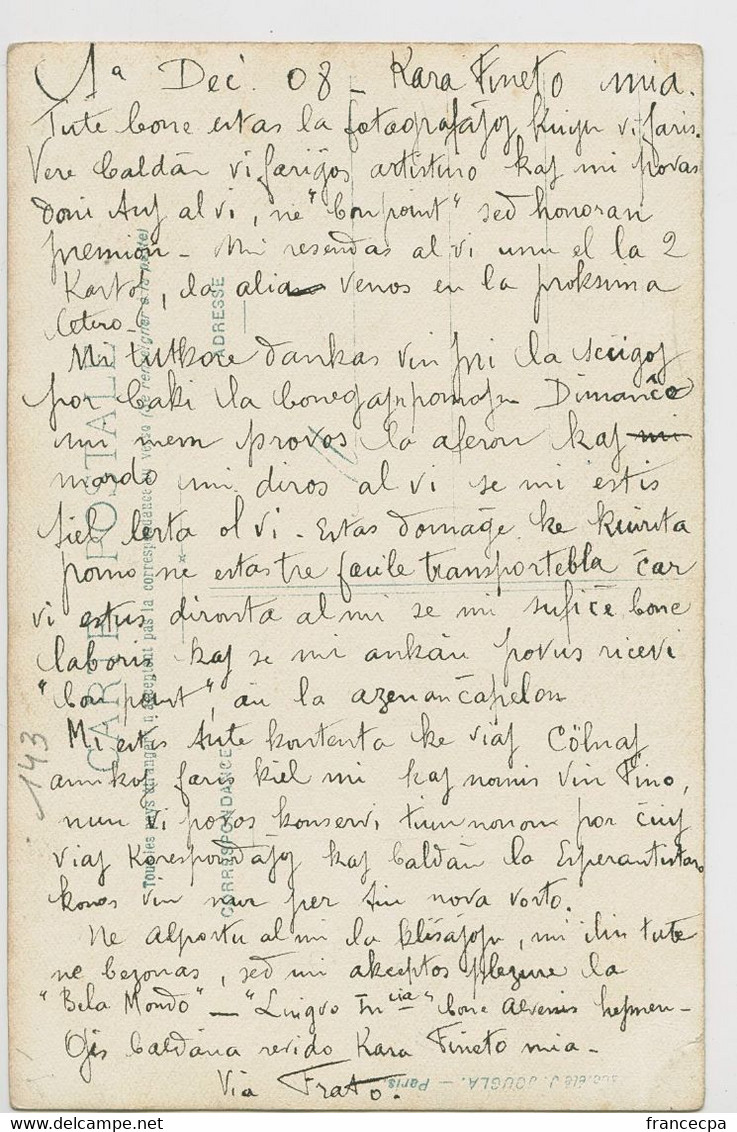 1ª Dec. 08 - Kara Fineto mia.
Tute bone estas la fotografaĵoj kiujn vi faris.
Vere baldaŭ vi fariĝos artistino kaj mi povas
doni tuj al vi, ne "bon point" sed honoran
premion - Mi resendas al vi unu el la 2
Kartoj, la alia venos en la proksima
letero -
Mi tutkore dankas vin pri la sciigoj
por baki la bonegajn pomojn Dimanĉe
mi mem provos la aferon kaj mi
mardo mi diros al vi se mi estis
tiel lerta ol vi - Estas domaĝe ke kuirita
pomo ne estas tre facile transportebla ĉar
vi estus dironta al mi se mi sufiĉe bone
laboris kaj se mi ankaŭ povus ricevi
"bon point", aŭ la azenan ĉapelon
Mi estas tute kontenta ke viaj Cölnaj
amikoj faris kiel mi kaj nomis vin Fino,
nun vi povos konservi tiun nomon por ĉiuj
viaj Korespondaĵoj kaj baldaŭ la Esperantistaro
konos vin nur per tiu nova vorto.
Ne alportu al mi la kliŝaĵojn, mi ilin tute
ne bezonas, sed mi akceptos plezure la
"Bela Mondo" - "Lingvo Incia" bone alvenis
Ĝis baldaŭa revido Kara Fineto mia -
Via Frato.
CARTE POSTALE
Tous les pays étrangers n'acceptent pas la correspondance au verso (se renseigner à la poste)
CORRESPONDANCE
ADRESSE
J. JOUGLA. - Paris.
143
francecpa